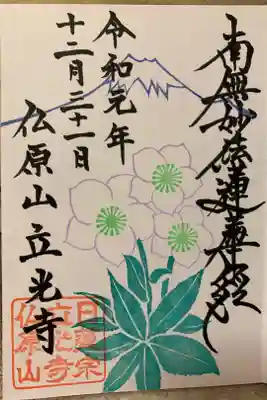 南無妙法蓮華経
令和元年
十二月三十一日
仏原山立光寺
日蓮宗
立光寺
仏原山